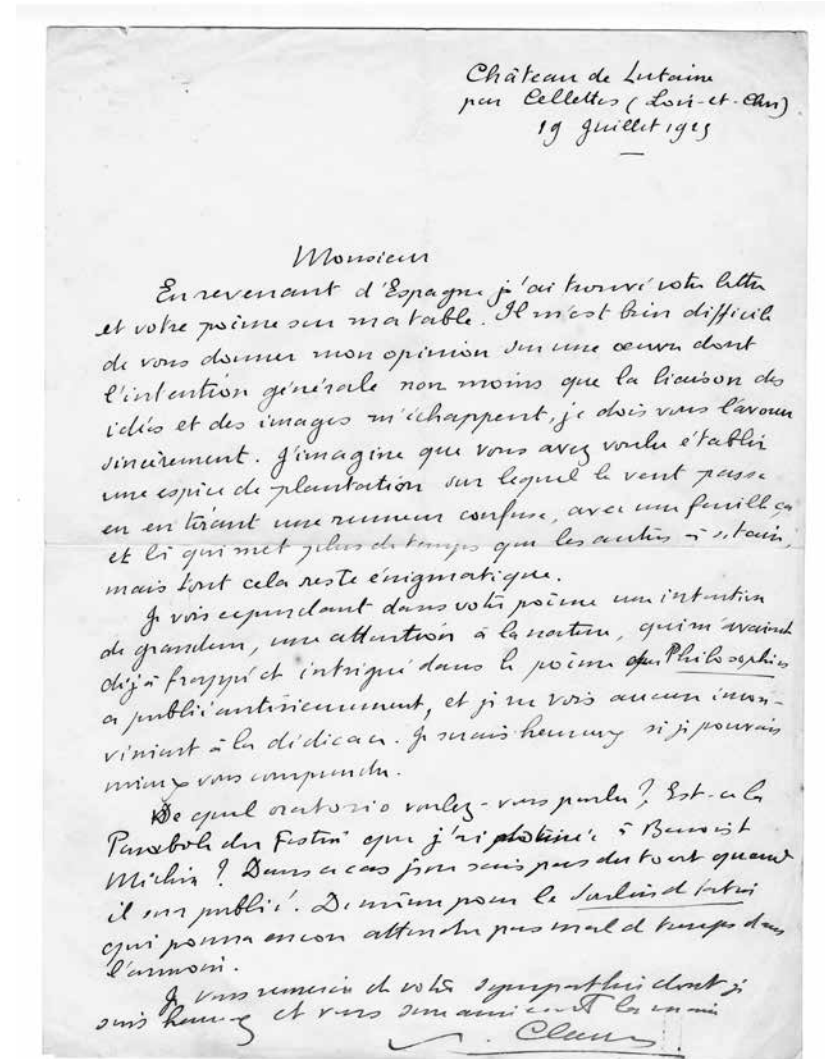 Château de Lutaine
par Cellettes (Loir-et-Cher)
19 Juillet 1925
Monsieur
En revenant d'Espagne j'ai trouvé votre lettre
et votre poème sur ma table. Il m'est bien difficile
de vous donner mon opinion sur une œuvre dont
l'intention générale non moins que la liaison des
idées et des images m'échappent, je dois vous l'avouer
sincèrement. J'imagine que vous avez voulu établir
une espèce de plantation sur lequel le vent passe
en en tirant une rumeur confuse, avec une feuille çà
et là qui met plus de temps que les autres à se taire,
mais tout cela reste énigmatique.
Je vois cependant dans votre poème une intention
de grandeur, une attention à la nature, qui m'avaient
déjà frappé et intrigué dans le poème que Philosophies
a publié antérieurement, et je ne vois aucun incon-
vénient à la dédicace. Je serais heureux si je pouvais
mieux vous comprendre.
De quel oratorio voulez-vous parler ? Est-ce la
Parabole du Festin que j'ai à Benoist
Méchin ? Dans ce cas je ne sais pas du tout quand
il sera publié. De même pour le Soulier de Satin
qui pourra encore attendre pas mal de temps dans
l'armoire.
Je vous remercie de votre sympathie dont je
suis heureux et vous serre amicalt la main
Claudel